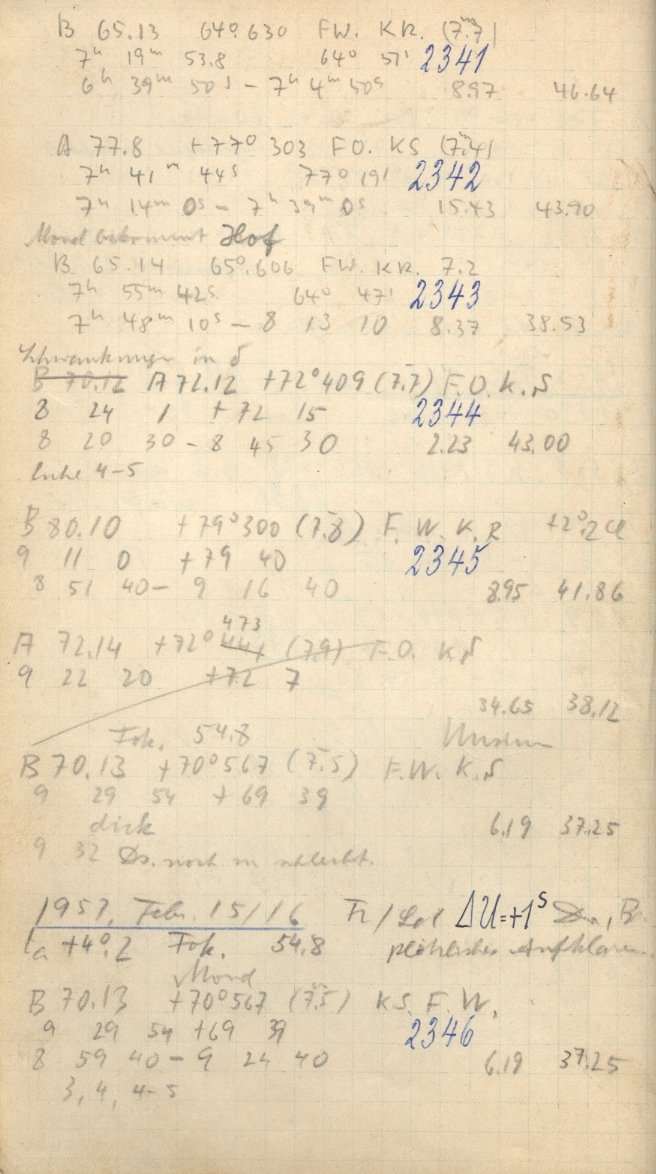 B 65.13 64° 630 FW. KR. (7.ᵐ7)
7ʰ 19ᵐ 53.8 64° 51' 2341
6ʰ 39ᵐ 50ˢ – 7ʰ 4ᵐ 50ˢ 8.97 46.64
A 77.8 +77° 303 FO. KS (7.ᵐ4)
7ʰ 41ᵐ 44ˢ 77° 19' 2342
7ʰ 14ᵐ 0ˢ – 7ʰ 39ᵐ 0ˢ 15.43 43.90
Mond bekommt Hof
B 65.14 65°.606 FW. KR. 7.2
7ʰ 55ᵐ 42ˢ 64° 47' 2343
7ʰ 48ᵐ 10ˢ – 8 13 10 8.37 38.53
Schwankungen in δ
B 70.12 A 72.12 +72°409 (7.7) F.O. K.S
8 24 1 +72 15 2344
8 20 30 – 8 45 30 2.23 43.00
4–5
B 80.10 +79°300 (7.8) F. W. K. R +2°.2
9 11 0 +79 40 2345
8 51 40 – 9 16 40 8.95 41.86
473
A 72.14 +72° (7.9) F.O. KS
9 22 20 +72 7
34.65 38.12
Fok. 54.8
B 70.13 +70°567 (7.5) F.W. K.S
9 29 54 +69 39
dick 6.19 37.25
9 32 noch
1957, Febr. 15/16 ΔU=+1ˢ
+4°.2 Fok. 54.8 plötzliches Aufklaren
Mond
B 70.13 +70°567 (7.5) KS. F. W.
9 29 54 +69 39 2346
8 59 40 – 9 24 40 6.19 37.25
3, 4, 4–5